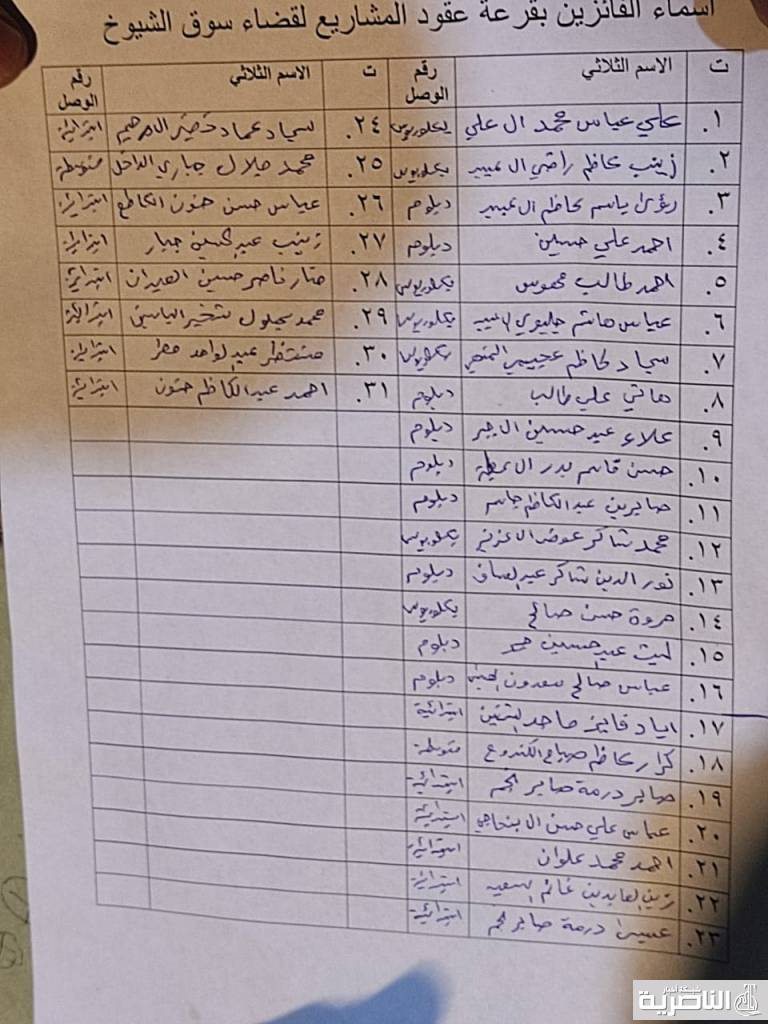 اسماء الفائزين بقرعة عقود المشاريع لقضاء سوق الشيوخ
ت الاسم الثلاثي رقم الوصل ت الاسم الثلاثي رقم الوصل
.١ علي عباس محمد ال علي بكلوريوس .٢٤ سجاد عماد خضير ابتدائية
.٢ زينب كاظم راضي ال عبيد بكلوريوس .٢٥ محمد جباري الداخل متوسطة
.٣ رؤى باسم كاظم ال عبيد دبلوم .٢٦ عباس حسن حنون الكاطع ابتدائية
.٤ احمد علي حسين دبلوم .٢٧ زينب عبد الحسين جبار ابتدائية
.٥ احمد طالب بكلوريوس .٢٨ ناصر حسين ابتدائية
.٦ عباس هاشم بكلوريوس .٢٩ محمد بهلول ابتدائية
.٧ سجاد كاظم بكلوريوس .٣٠ منتظر عبد الواحد مطر ابتدائية
.٨ هاني علي طالب دبلوم .٣١ احمد عبد الكاظم حنون ابتدائية
.٩ علاء عبد حسين دبلوم
.١٠ حسن قاسم بدر دبلوم
.١١ صابرين عبد الكاظم جاسم دبلوم
.١٢ محمد شاكر عوض بكلوريوس
.١٣ نور الدين شاكر دبلوم
.١٤ مروة حسن صالح بكلوريوس
.١٥ ليث عبد حسين دبلوم
.١٦ عباس صالح سعدون دبلوم
.١٧ اياد فايز ابتدائية
.١٨ كرار كاظم متوسطة
.١٩ صابر درمة صابر ابتدائية
.٢٠ عباس علي حسن ابتدائية
.٢١ احمد محمد علوان ابتدائية
.٢٢ زين العابدين غانم ابتدائية
.٢٣ درمة صابر ابتدائية
شبكة أخبار
الناصرية